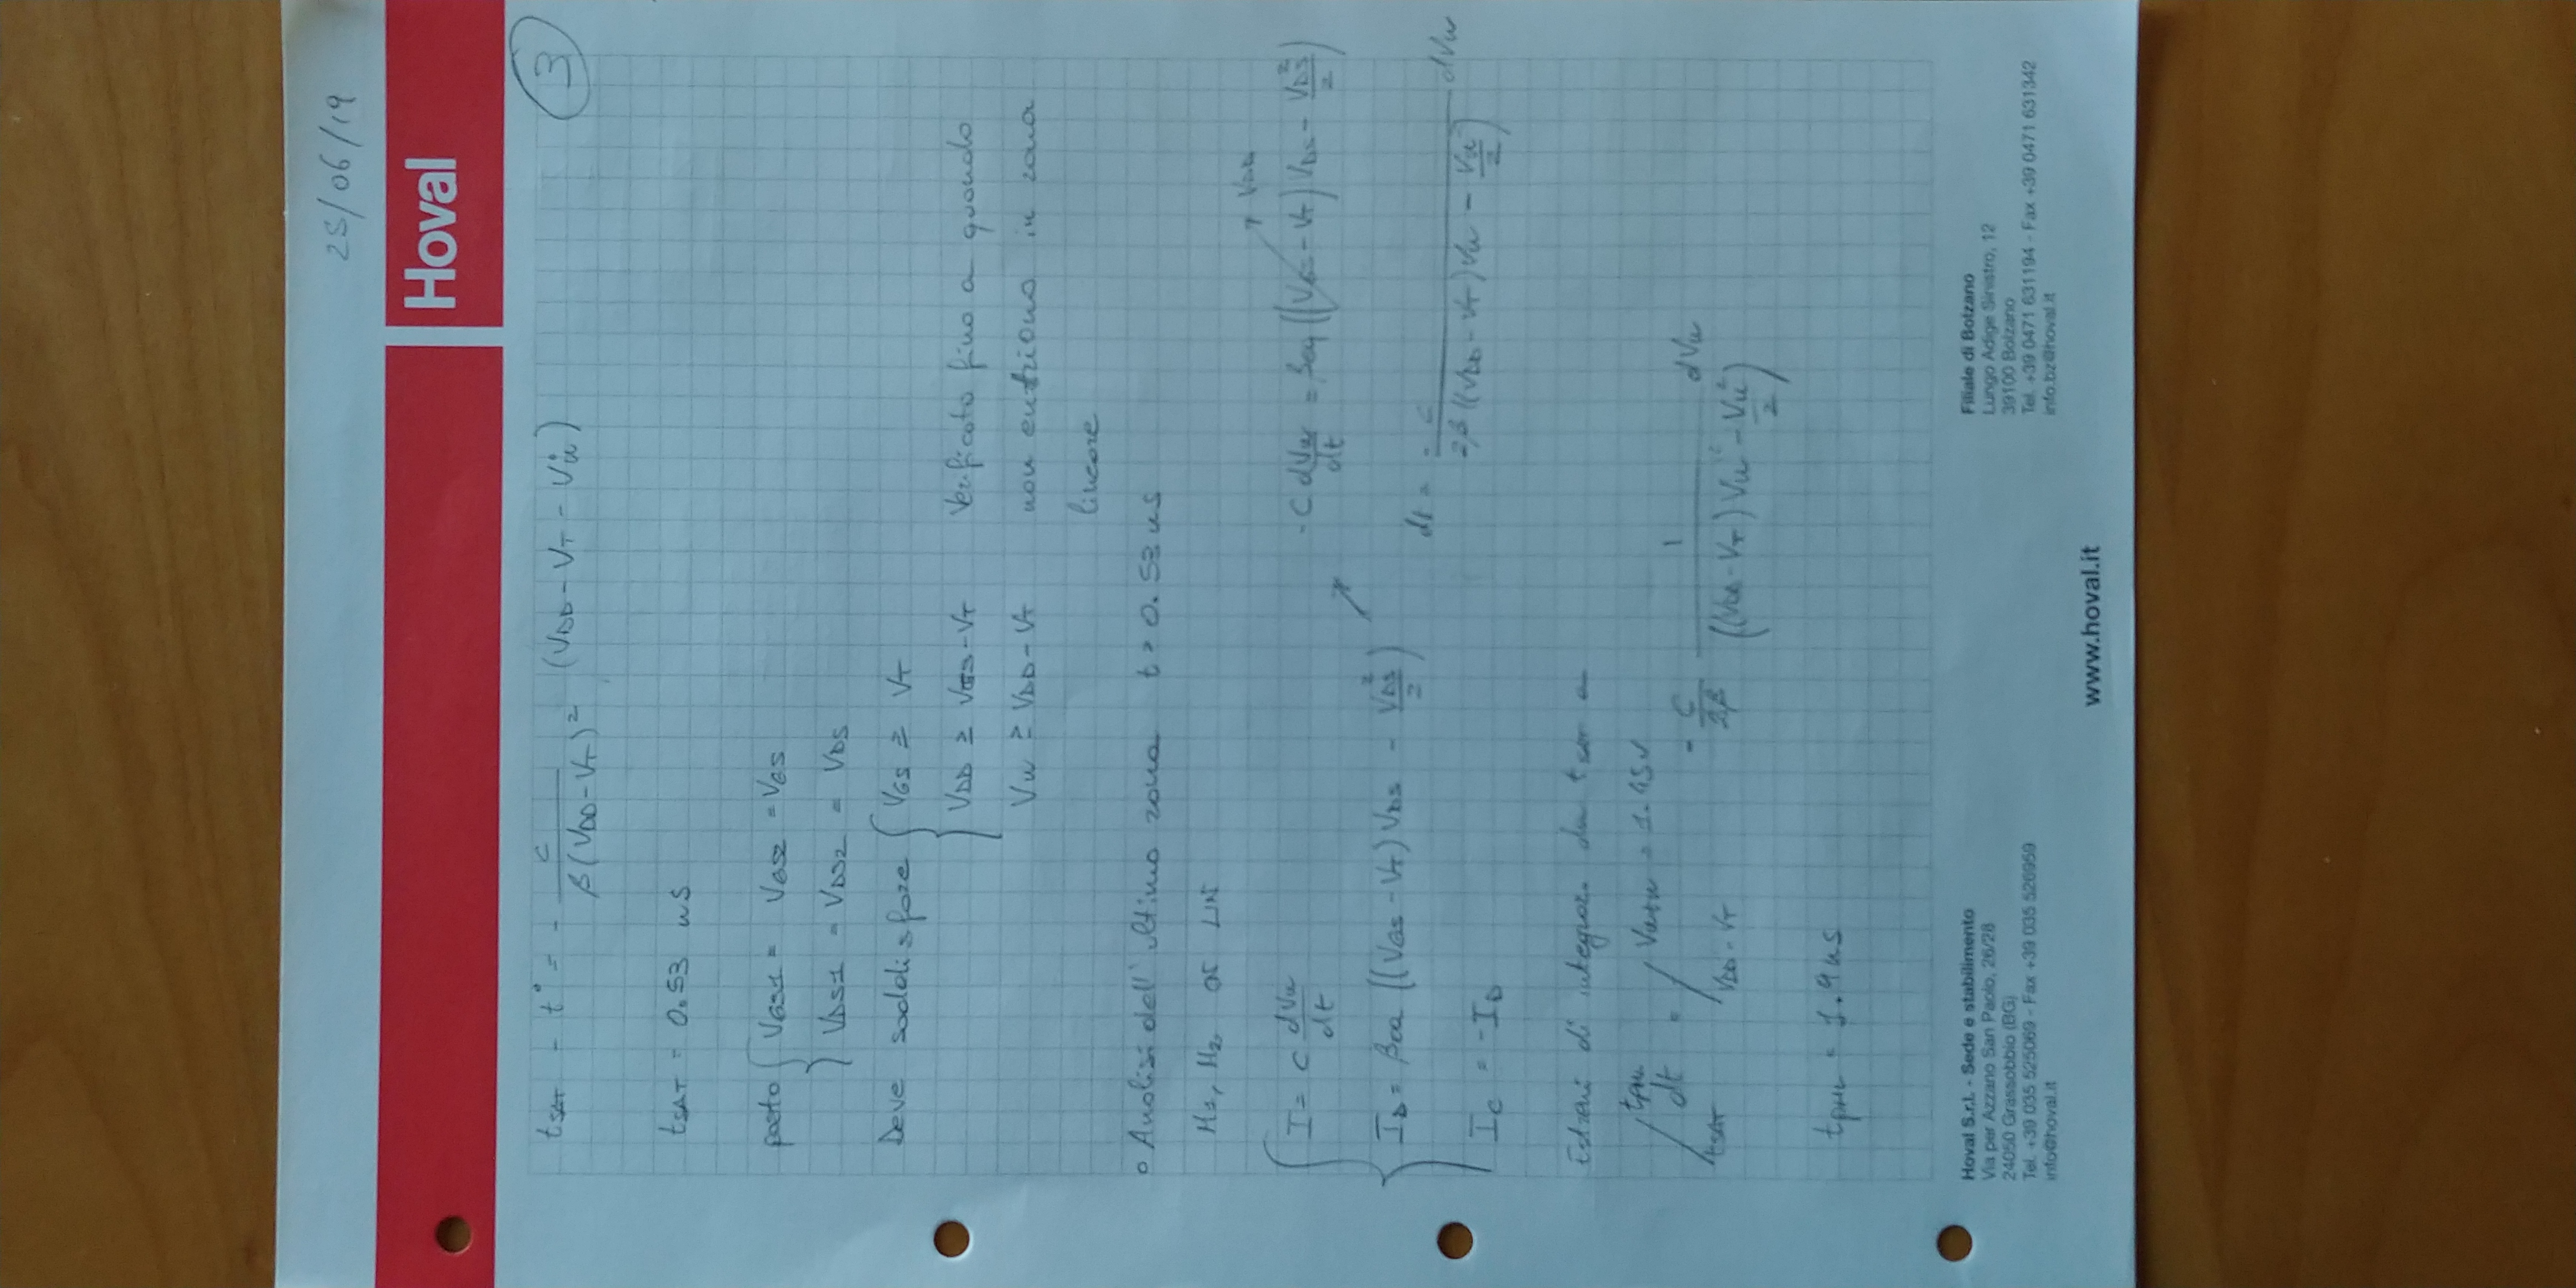 25/06/19
Hoval
3
tSAT - t° = - C / β(VDD-VT)² (VDD - VT - Vu°)
tSAT = 0.53 ns
posto { VGS1 = VGS2 = VGS
VDS1 = VDS2 = VDS
Deve soddisfare { VGS ≥ VT
VDD ≥ VGS-VT Verificato fino a quando
Vu ≥ VDD-VT non entriamo in zona
lineare
o Analisi dell'ultima zona t > 0.53 ns
M1, M2 ON LIN
I = C dVu/dt
-C dVu/dt = βeq ((VGS-VT) VDS - VDS²/2) VDD
ID = βeq ((VGS-VT) VDS - VDS²/2)
dt = -C / 2β((VDD-VT)Vu - Vu²/2) dVu
IC = -ID
Estremi di integraz. da tSAT a
∫ tSAT tPHL dt = ∫ VDD-VT = 1.45V - C/2β 1/((VDD-VT)Vu - Vu²/2) dVu
tPHL = 1.9 ns
Hoval S.r.l. - Sede e stabilimento
Via per Azzano San Paolo, 26/28
24050 Grassobbio (BG)
Tel. +39 035 525069 - Fax +39 035 526959
info@hoval.it
Filiale di Bolzano
Lungo Adige Sinistro, 12
39100 Bolzano
Tel. +39 0471 631194 - Fax +39 0471 631342
info.bz@hoval.it
www.hoval.it